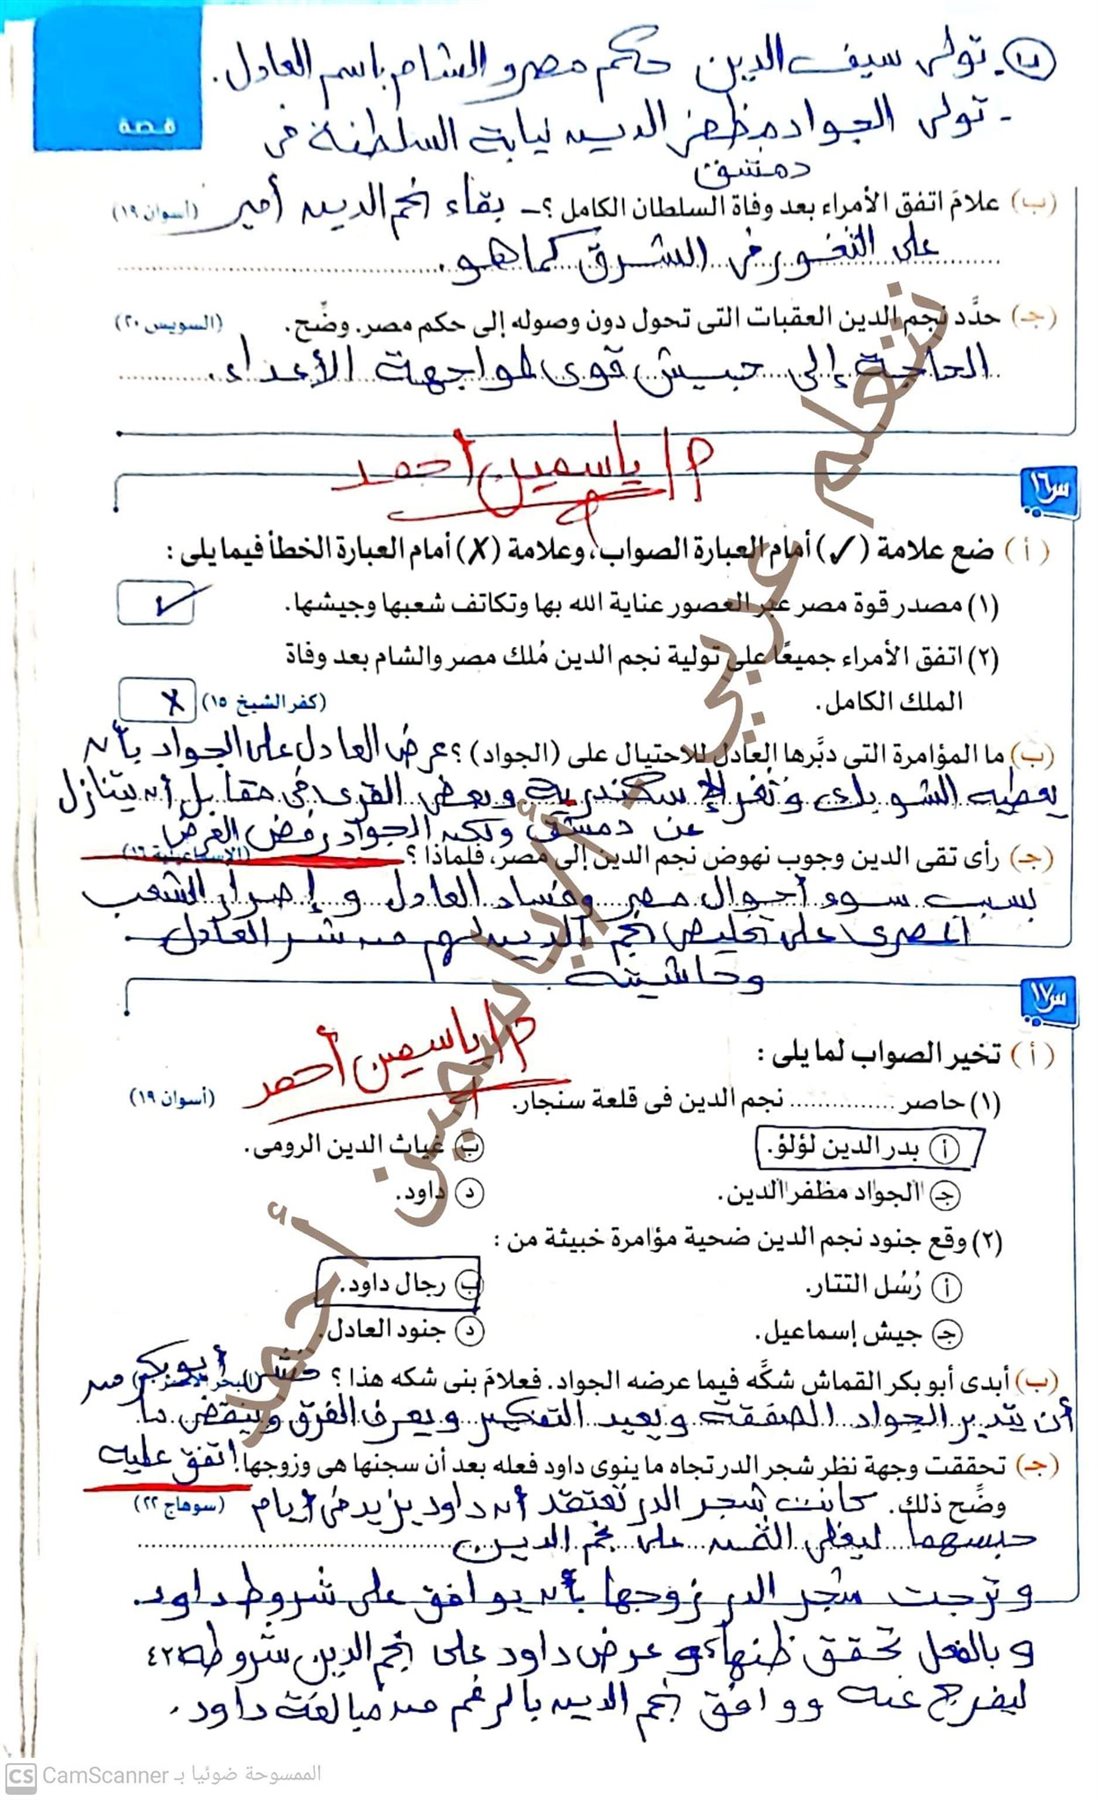 ١٥ - تولى سيف الدين حكم مصر والشام باسم العادل.
قصة
- تولى الجواد مظفر الدين نيابة السلطنة فى
دمشق
(ب) علامَ اتفق الأمراء بعد وفاة السلطان الكامل ؟ - بقاء نجم الدين أمير (أسوان ١٩)
على الثغور فى الشرق كما هو.
(جـ) حدَّد نجم الدين العقبات التى تحول دون وصوله إلى حكم مصر. وضِّح. (السويس ٢٠)
الحاجة إلى جيش قوى لمواجهة الأعداء.
م/ ياسمين أحمد
س١٦
(أ) ضع علامة (✓) أمام العبارة الصواب، وعلامة (✗) أمام العبارة الخطأ فيما يلى :
(١) مصدر قوة مصر عبر العصور عناية الله بها وتكاتف شعبها وجيشها. ✓
(٢) اتفق الأمراء جميعًا على تولية نجم الدين مُلك مصر والشام بعد وفاة
الملك الكامل. (كفر الشيخ ١٥) X
(ب) ما المؤامرة التى دبَّرها العادل للاحتيال على (الجواد) ؟ عرض العادل على الجواد بأن
يعطيه الشوبك وثغر الإسكندرية وبعض القرى فى مقابل أن يتنازل
عن دمشق ولكن الجواد رفض العرض
(جـ) رأى تقى الدين وجوب نهوض نجم الدين إلى مصر، فلماذا ؟ (الإسماعيلية ١٦)
بسبب سوء أحوال مصر وفساد العادل وإصرار الشعب
المصرى على تخليص نجم الدين لهم من شر العادل
وحاشيته.
س١٧
م/ ياسمين أحمد
(أ) تخير الصواب لما يلى :
(١) حاصر .............. نجم الدين فى قلعة سنجار. (أسوان ١٩)
أ بدر الدين لؤلؤ. ب غياث الدين الرومى.
جـ الجواد مظفر الدين. د داود.
(٢) وقع جنود نجم الدين ضحية مؤامرة خبيثة من :
أ رُسُل التتار. ب رجال داود.
جـ جيش إسماعيل. د جنود العادل.
(ب) أبدى أبو بكر القماش شكَّه فيما عرضه الجواد. فعلامَ بنى شكه هذا ؟ خشى أبو بكر من
أن يتدبر الجواد الصفقة ويعيد التفكير ويعرف الفرق وينقض ما
(جـ) تحققت وجهة نظر شجر الدر تجاه ما ينوى داود فعله بعد أن سجنها هى وزوجها! اتفق عليه
وضِّح ذلك. كانت شجر الدر تعتقد أن داود يزيد فى أيام (سوهاج ٢٢)
حبسهما ليغلى الثمن على نجم الدين
وترجت شجر الدر زوجها بأن يوافق على شروط داود.
وبالفعل تحقق ظنها، وعرض داود على نجم الدين شروطه ٤٢
ليفرج عنه ووافق نجم الدين بالرغم من مبالغة داود.
نتعلم عربي - أ/ياسمين أحمد
CS CamScanner الممسوحة ضوئيا بـ